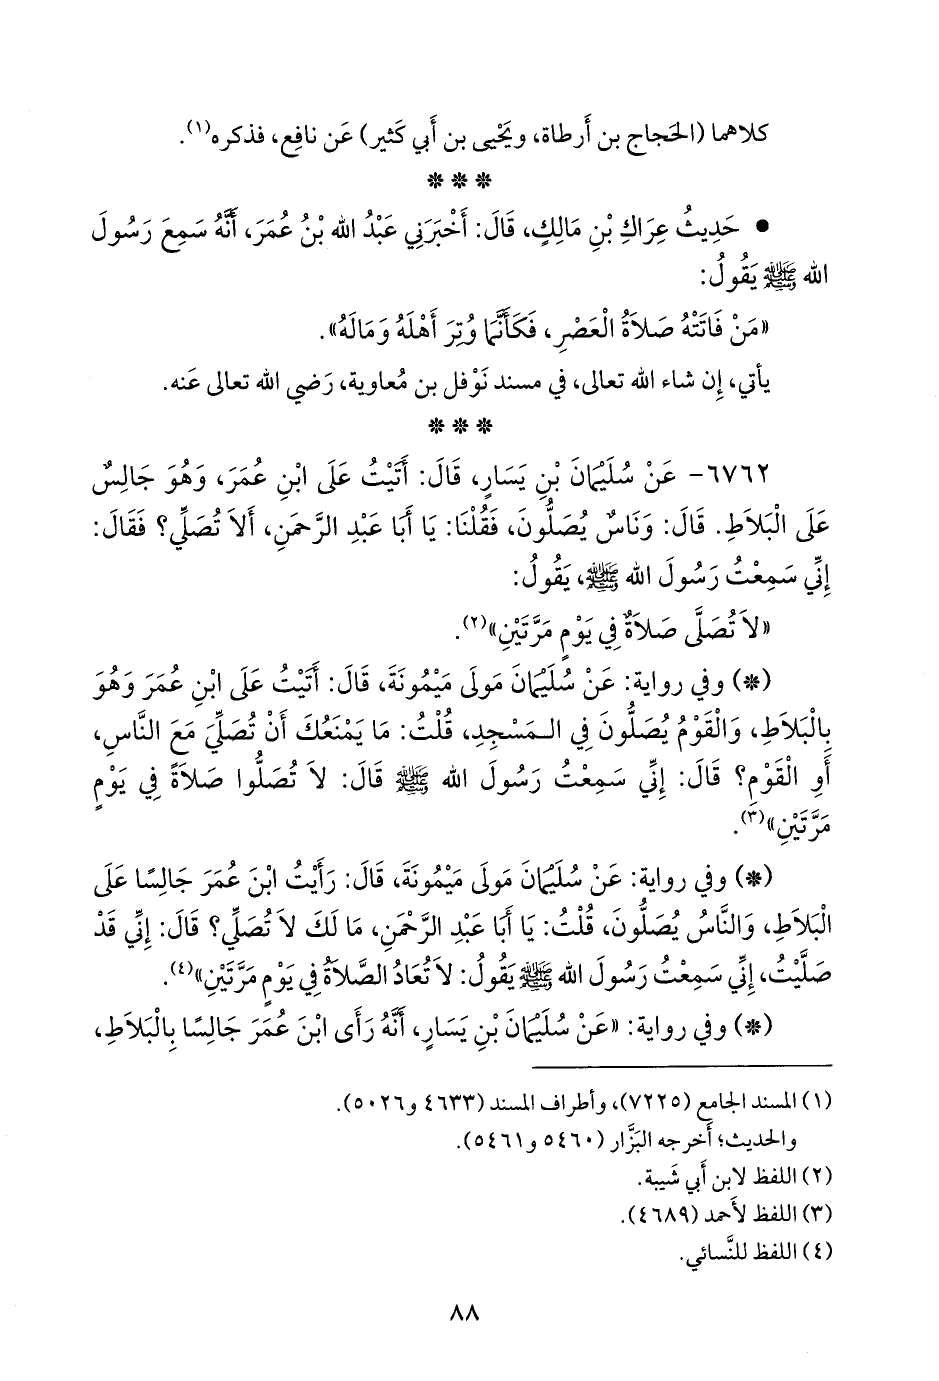 كلاهما (الحَجاج بن أَرطاة، ويَحْيى بن أَبي كَثير) عَن نافِع، فذكره(١).
* * *
• حَدِيثُ عِرَاكِ بْنِ مَالِكٍ، قَالَ: أَخْبَرَنِي عَبْدُ الله بْنُ عُمَرَ، أَنَّهُ سَمِعَ رَسُولَ
الله ﷺ يَقُولُ:
«مَنْ فَاتَتْهُ صَلاَةُ الْعَصْرِ، فَكَأَنَّمَا وُتِرَ أَهْلَهُ وَمَالَهُ».
يأتي، إِن شاء الله تعالى، في مسند نَوْفل بن مُعاوية، رَضي الله تعالى عَنه.
* * *
٦٧٦٢- عَنْ سُلَيْمَانَ بْنِ يَسَارٍ، قَالَ: أَتَيْتُ عَلَى ابْنِ عُمَرَ، وَهُوَ جَالِسٌ
عَلَى الْبَلاَطِ. قَالَ: وَنَاسٌ يُصَلُّونَ، فَقُلْنَا: يَا أَبَا عَبْدِ الرَّحمَنِ، أَلاَ تُصَلِّي؟ فَقَالَ:
إِنِّي سَمِعْتُ رَسُولَ الله ﷺ، يَقُولُ:
«لاَ تُصَلَّى صَلاَةٌ فِي يَوْمٍ مَرَّتَيْنِ»(٢).
(*) وفي رواية: عَنْ سُلَيْمَانَ مَولَى مَيْمُونَةَ، قَالَ: أَتَيْتُ عَلَى ابْنِ عُمَرَ وَهُوَ
بِالْبَلاَطِ، وَالْقَوْمُ يُصَلُّونَ فِي الـمَسْجِدِ، قُلْتُ: مَا يَمْنَعُكَ أَنْ تُصَلِّيَ مَعَ النَّاسِ،
أَوِ الْقَوْمِ؟ قَالَ: إِنِّي سَمِعْتُ رَسُولَ الله ﷺ قَالَ: لاَ تُصَلُّوا صَلاَةً فِي يَوْمٍ
مَرَّتَيْنِ»(٣).
(*) وفي رواية: عَنْ سُلَيْمَانَ مَولَى مَيْمُونَةَ، قَالَ: رَأَيْتُ ابْنَ عُمَرَ جَالِسًا عَلَى
الْبَلاَطِ، وَالنَّاسُ يُصَلُّونَ، قُلْتُ: يَا أَبَا عَبْدِ الرَّحْمَنِ، مَا لَكَ لاَ تُصَلِّي؟ قَالَ: إِنِّي قَدْ
صَلَّيْتُ، إِنِّي سَمِعْتُ رَسُولَ الله ﷺ يَقُولُ: لاَ تُعَادُ الصَّلاَةُ فِي يَوْمٍ مَرَّتَيْنِ»(٤).
(*) وفي رواية: «عَنْ سُلَيْمَانَ بْنِ يَسَارٍ، أَنَّهُ رَأَى ابْنَ عُمَرَ جَالِسًا بِالْبَلاَطِ،
(١) المسند الجامع (٧٢٢٥)، وأطراف المسند (٤٦٣٣ و٥٠٢٦).
والحديث؛ أَخرجه البَزَّار (٥٤٦٠ و٥٤٦١).
(٢) اللفظ لابن أَبي شَيبة.
(٣) اللفظ لأَحمد (٤٦٨٩).
(٤) اللفظ للنَّسائي.
٨٨